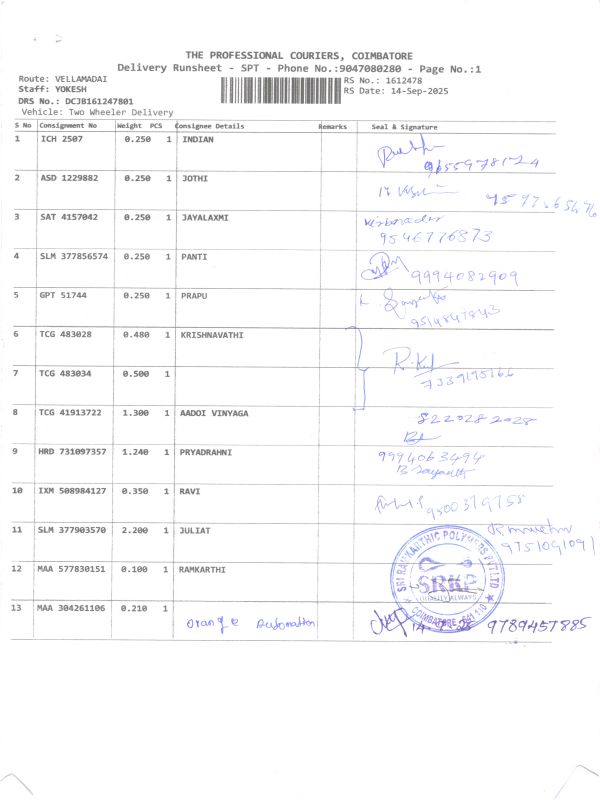 THE PROFESSIONAL COURIERS, COIMBATORE
Delivery Runsheet - SPT - Phone No.:9047080280 - Page No.:1
Route: VELLAMADAI RS No.: 1612478
Staff: YOKESH RS Date: 14-Sep-2025
DRS No.: DCJB161247801
Vehicle: Two Wheeler Delivery
S No Consignment No Weight PCS Consignee Details Remarks Seal & Signature
1 ICH 2507 0.250 1 INDIAN
9655978124
2 ASD 1229882 0.250 1 JOTHI
3 SAT 4157042 0.250 1 JAYALAXMI
9546776873
4 SLM 377856574 0.250 1 PANTI
9994082909
5 GPT 51744 0.250 1 PRAPU
6 TCG 483028 0.480 1 KRISHNAVATHI
7 TCG 483034 0.500 1
7339195166
8 TCG 41913722 1.300 1 AADOI VINYAGA
8220282028
9 HRD 731097357 1.240 1 PRYADRAHNI
9994063494
10 IXM 508984127 0.350 1 RAVI
9500319758
11 SLM 377903570 2.200 1 JULIAT
9751091091
12 MAA 577830151 0.100 1 RAMKARTHI
SRI RAMKARTHIC POLYMERS PVT LTD
SRKP
QUALITY ALWAYS
COIMBATORE - 641 110
13 MAA 304261106 0.210 1 Orange Automation 9789457885